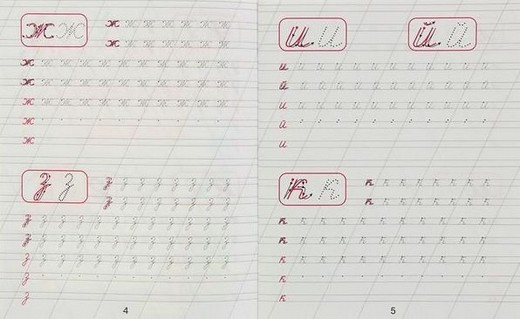 ж ж
ж ж ж ж ж ж ж
ж ж ж ж ж ж ж
ж ж ж ж ж ж ж ж ж ж ж
ж ж ж ж ж ж ж ж ж ж ж
ж ж ж ж ж ж ж ж ж ж ж
ж
ж
з з
з з з з з з з з
з з з з з з з з
з з з з з з з з з з з з з
з з з з з з з з з з з з з
з з з з з з з з з з з з з
з
з
4
и и й й
и и и и и и и и и и и и
й й й й й й й й й й й й й й
и и и и и и и и и и и и
и
к к
к к к к к к к к
к к к к к к к к
к к к к к к к к к к к к
к к к к к к к к к к к к
к к к к к к к к к к к к
к
к
5